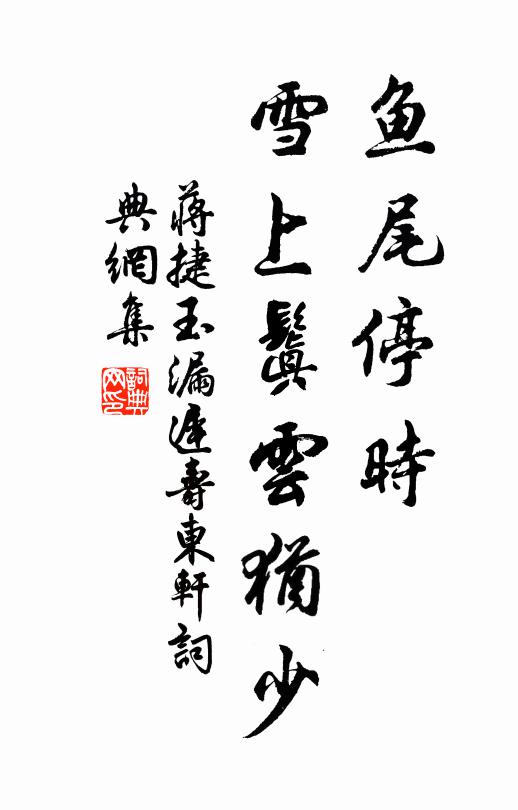 鱼尾停時
雪上鬒雲猶少
蔣捷玉漏遲壽東軒詞
典網集
詞典網印